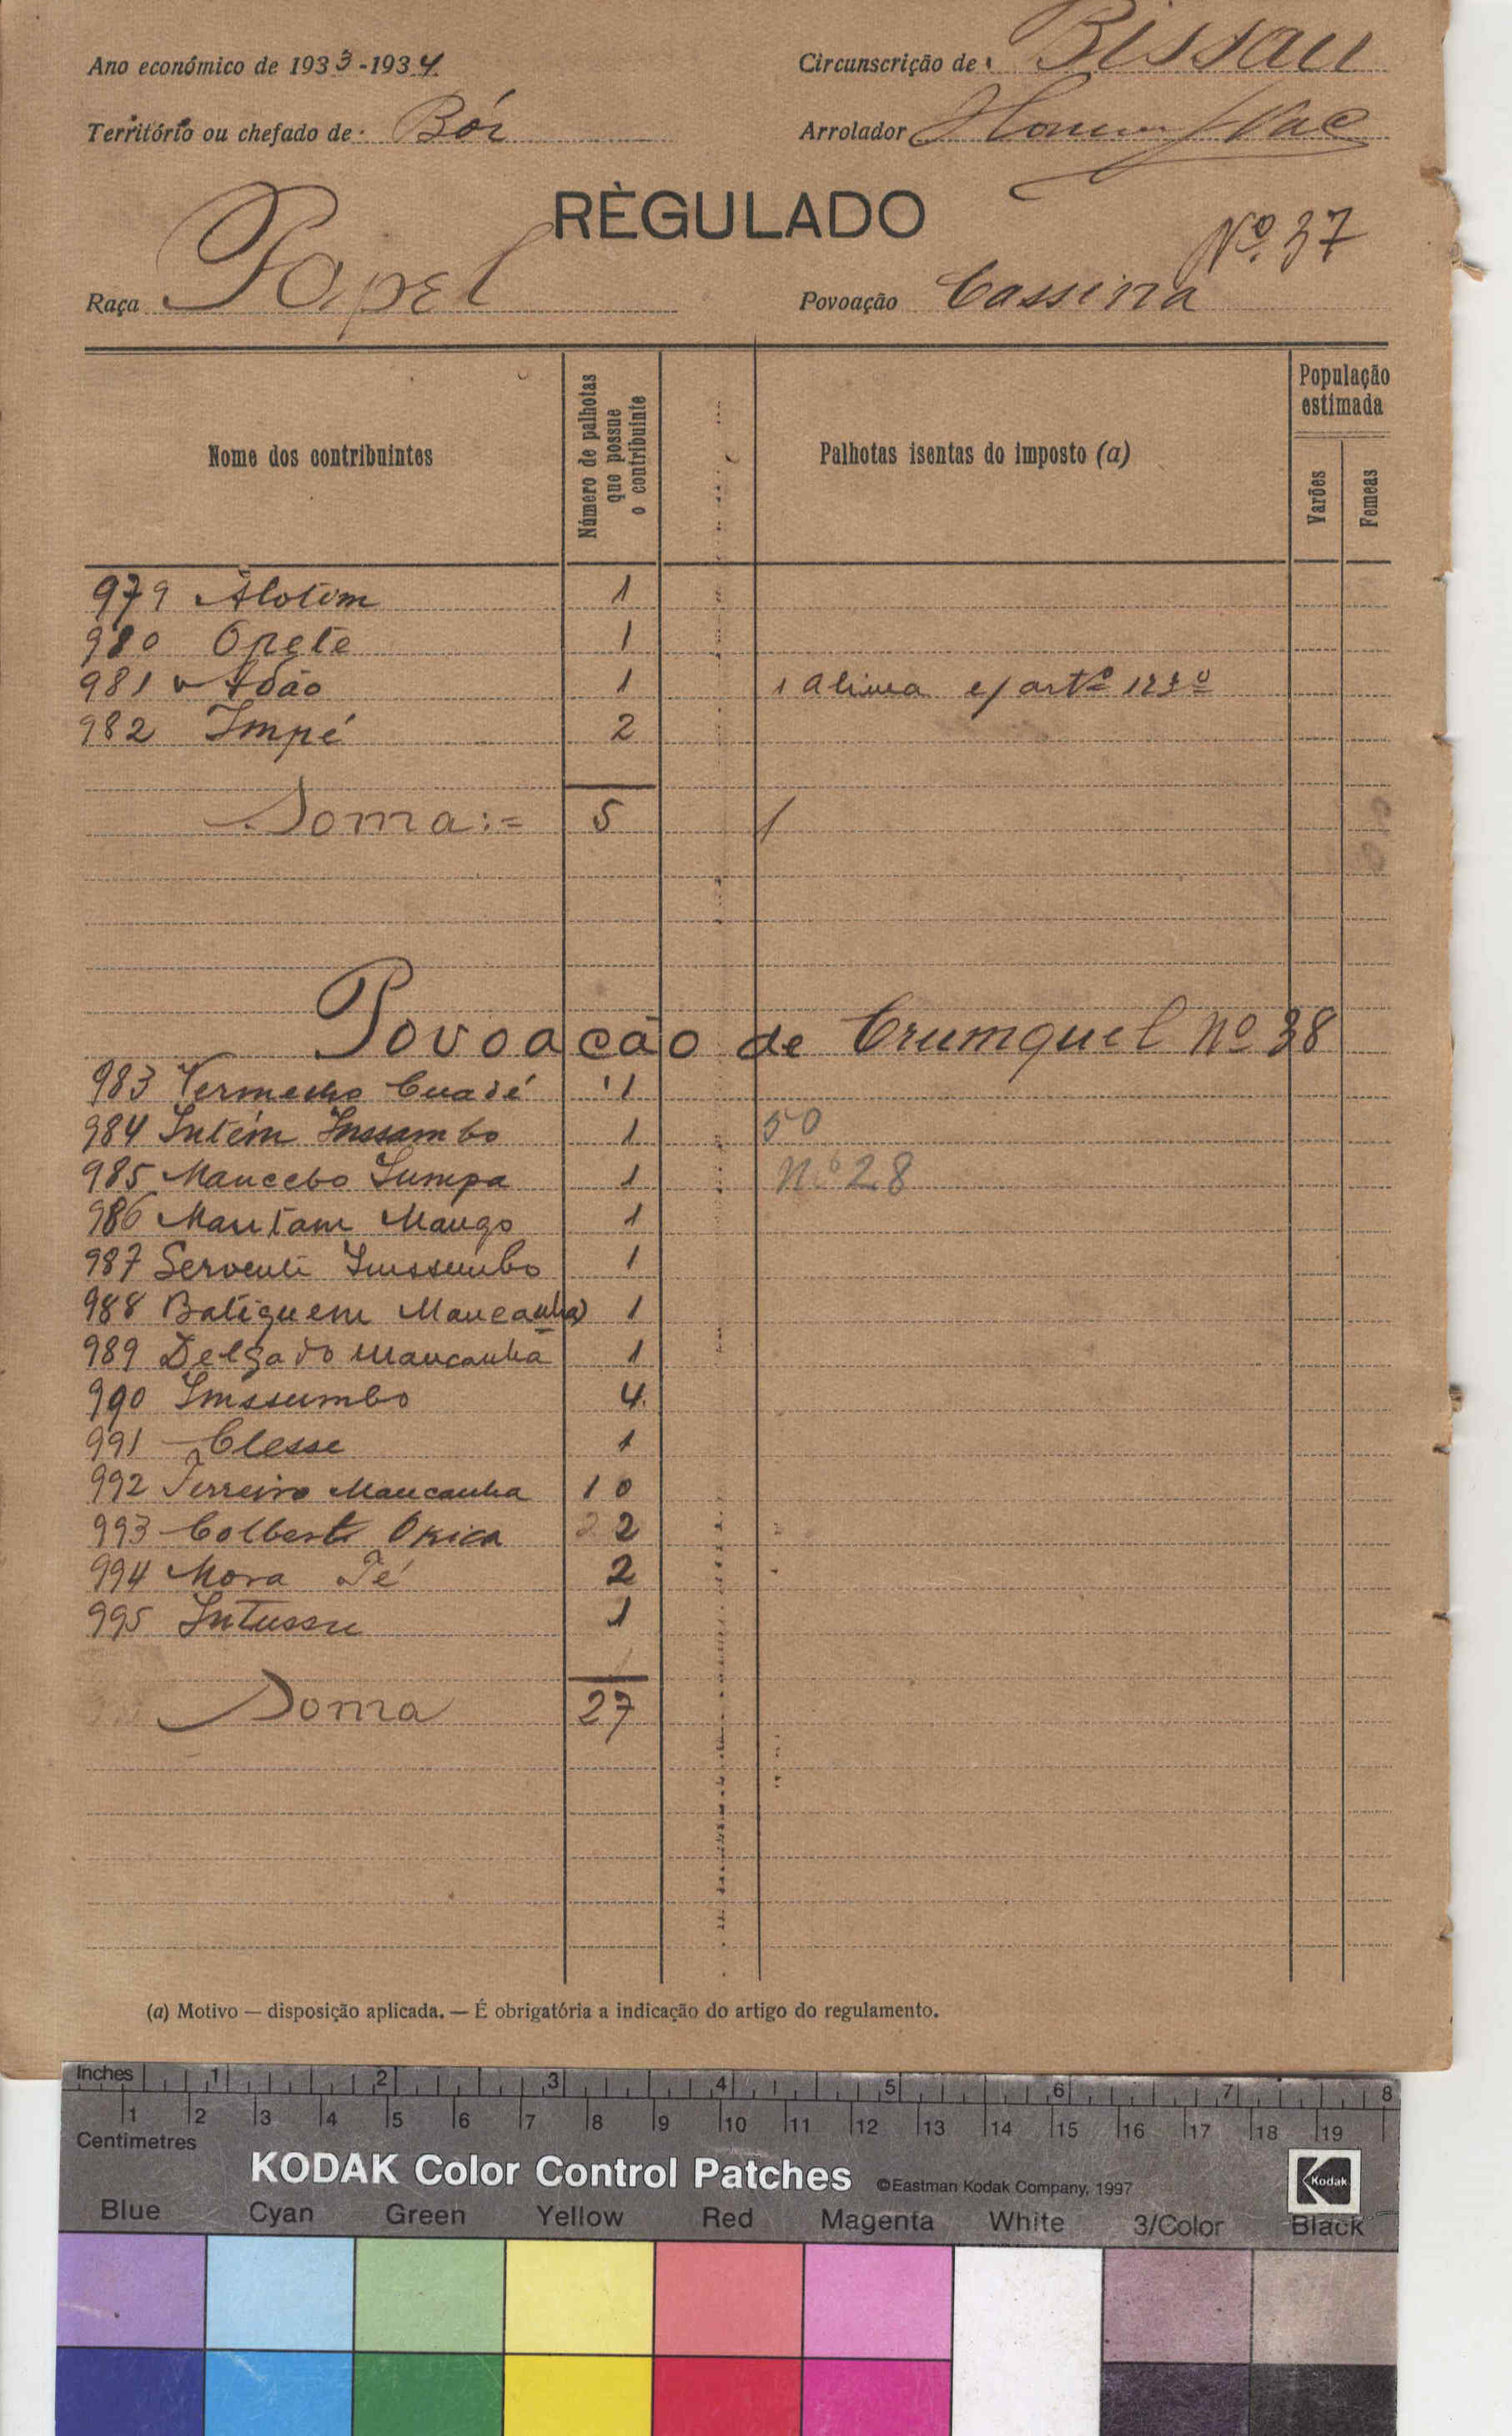 Ano económico de 1933-1934
Circunscrição de Bissau
Território ou chefado de Bór
Arrolador
RÈGULADO
Nº 37
Raça Papel
Povoação Cassina
Nome dos contribuintes
Número de palhotas que possue o contribuinte
Palhotas isentas do imposto (a)
População estimada
Varões
Femeas
979 Alotim 1
980 Opete 1
981 Adão 1 1 alinea e/ artº 123º
982 Impé 2
Soma:= 5 1
Povoação de Crumquel Nº 38
983 Vermelho Cuadé 1
984 Intém Inssambo 1 50
985 Mancebo Lumpa 1 Nº 28
986 Maritam Mango 1
987 Serventi Imssumbo 1
988 Batiquem Mancanha 1
989 Delgado Mancanha 1
990 Imssumbo 4
991 Clesse 1
992 Ferreiro Mancanha 10
993 Colbert Okica 2
994 Mora Té 2
995 Intussu 1
Soma 27
(a) Motivo — disposição aplicada. — É obrigatória a indicação do artigo do regulamento.
Inches 1 2 3 4 5 6 7 8
1 2 3 4 5 6 7 8 9 10 11 12 13 14 15 16 17 18 19
Centimetres
KODAK Color Control Patches ©Eastman Kodak Company, 1997 Kodak
Blue Cyan Green Yellow Red Magenta White 3/Color Black